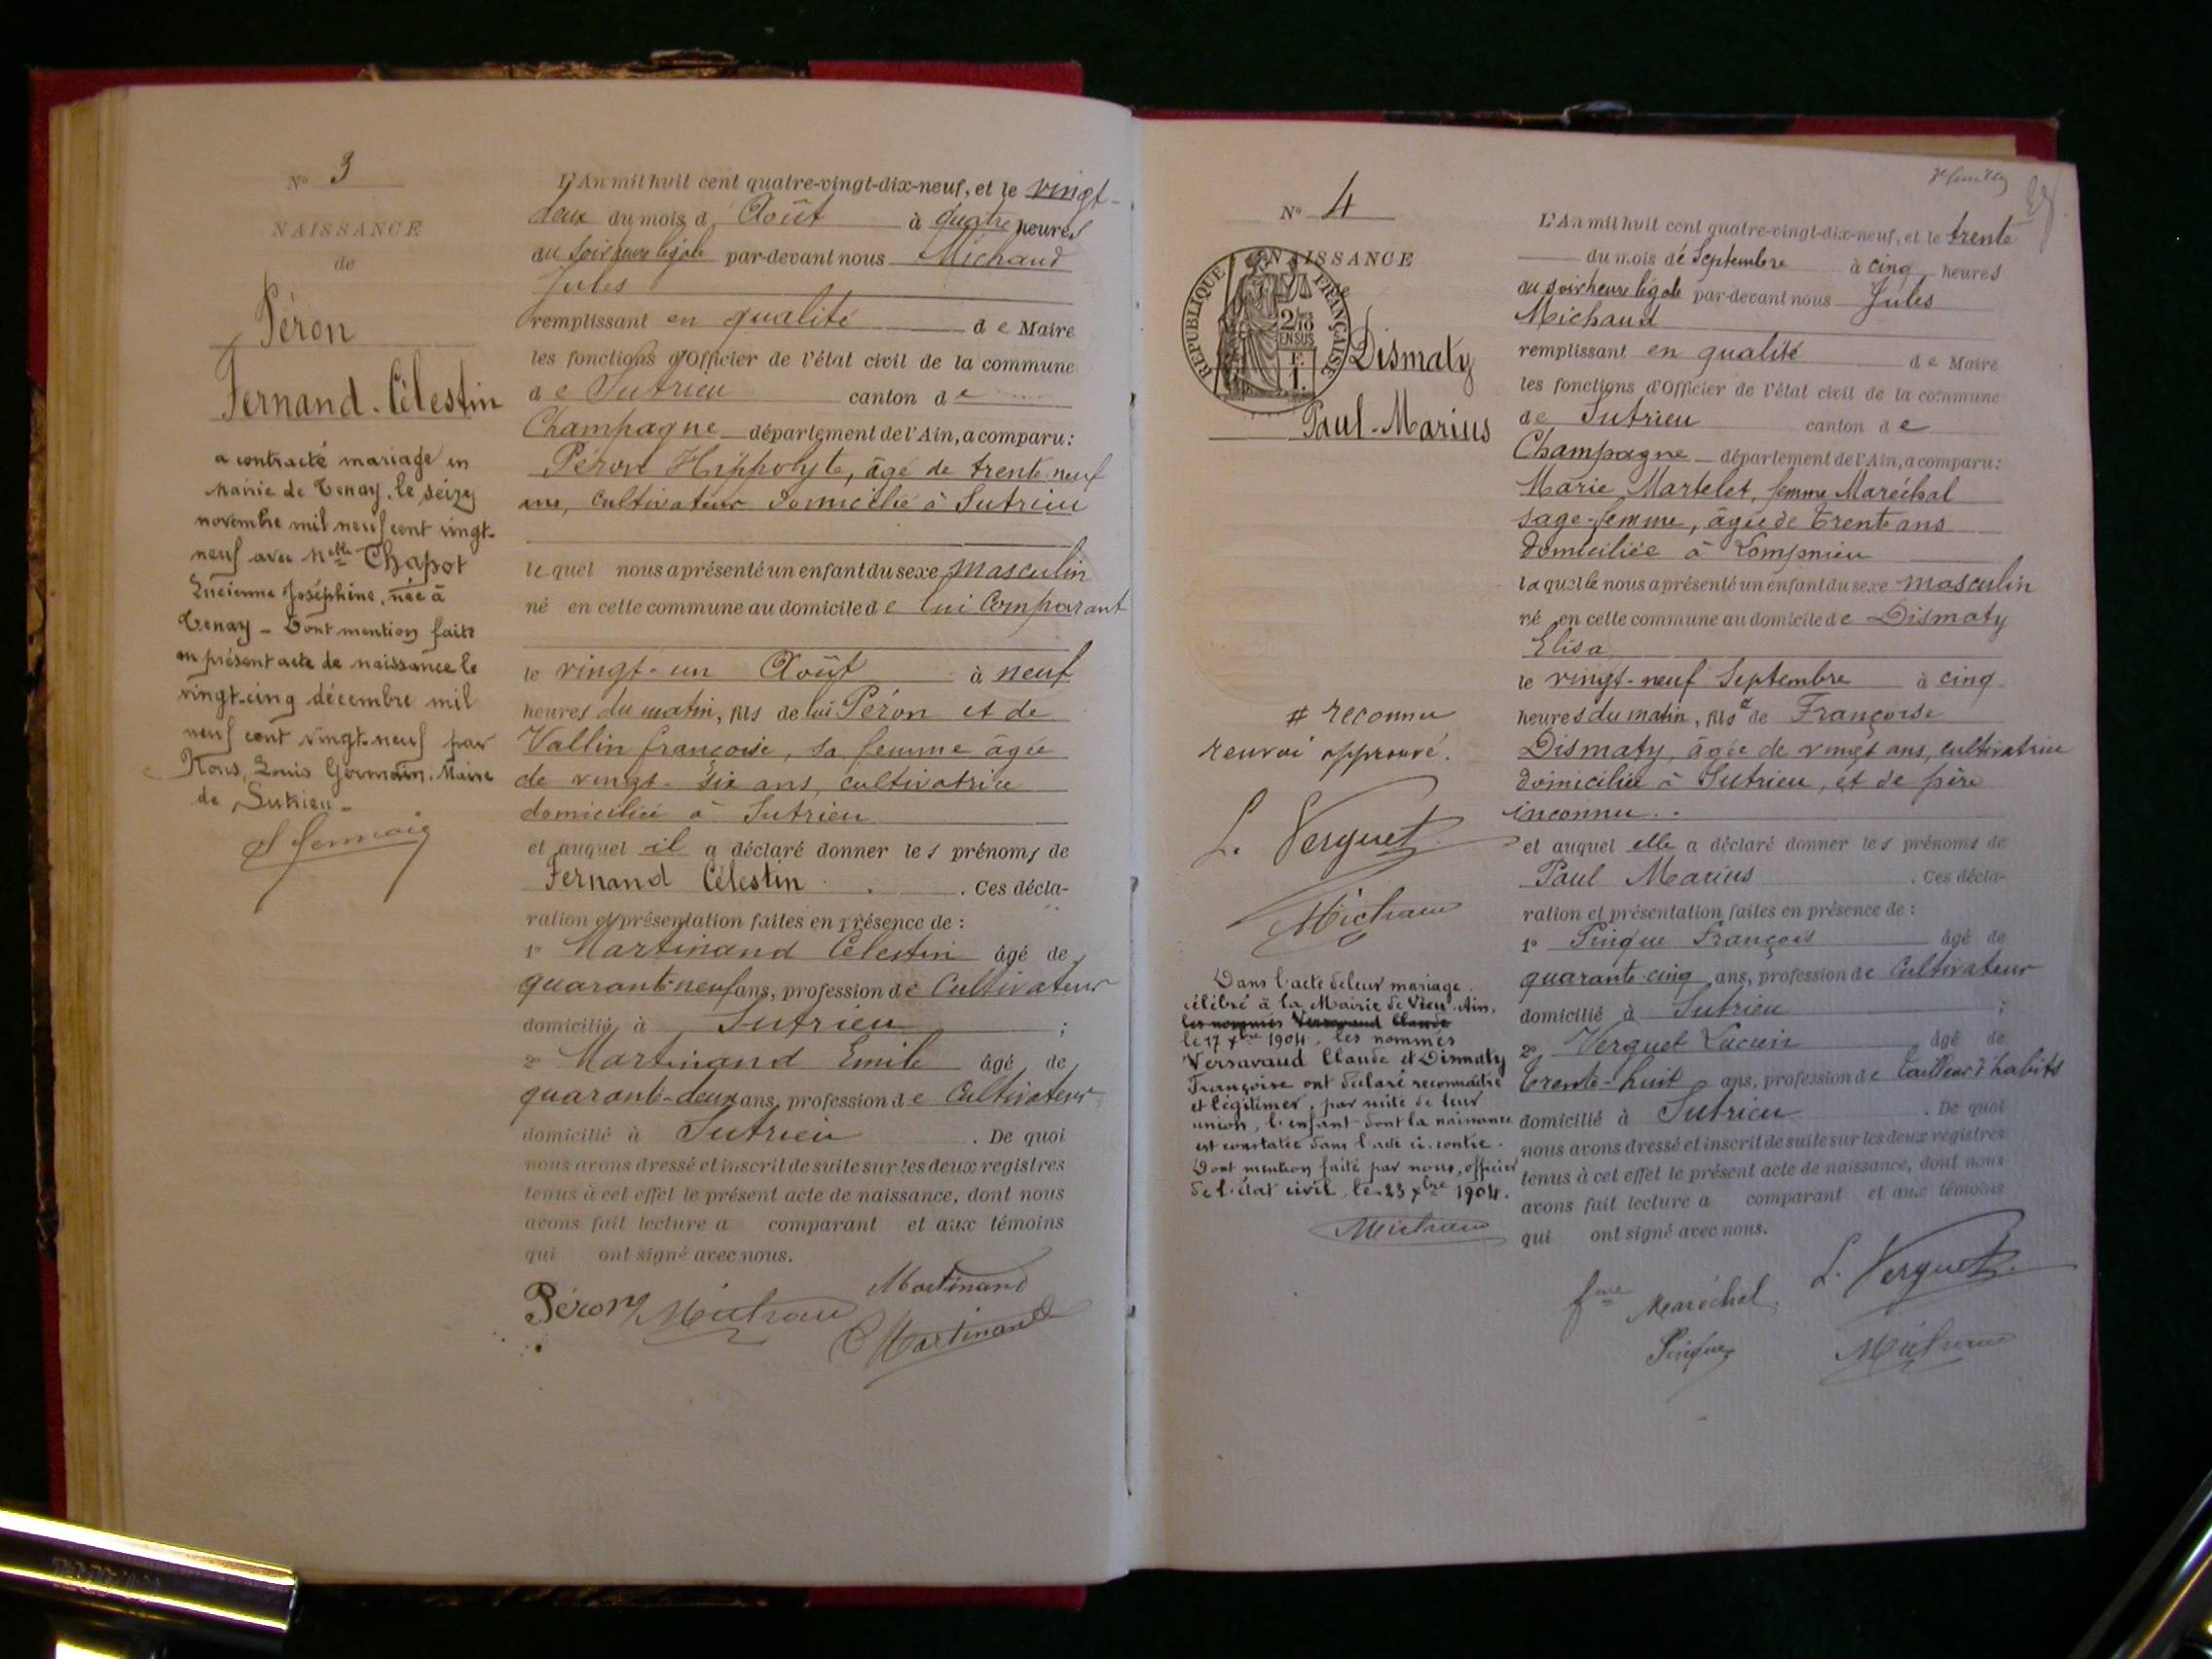 Nº 3
NAISSANCE
de
Péron
Fernand-Célestin
a contracté mariage en
mairie de Tenay, le seize
novembre mil neuf cent vingt-
neuf avec Nelle Chapot
Lucienne Joséphine, née à
Tenay - Dont mention faite
en présent acte de naissance le
vingt-cinq décembre mil
neuf cent vingt-neuf par
Nous, Louis Germain, Maire
de Sutrieu -
L'An mil huit cent quatre-vingt-dix-neuf, et le vingt-
deux du mois d'Août à quatre heures
du soir heure légale par-devant nous Michaud
Jules
remplissant en qualité de Maire
les fonctions d'Officier de l'état civil de la commune
de Sutrieu canton de
Champagne département de l'Ain, a comparu:
Péron Hippolyte, âgé de trente-neuf
ans, cultivateur domicilié à Sutrieu
lequel nous a présenté un enfant du sexe masculin
né en cette commune au domicile de lui comparant
le vingt-un Août à neuf
heures du matin, fils de lui Péron et de
Vallin françoise, sa femme âgée
de vingt-six ans, cultivatrice
domiciliée à Sutrieu
et auquel il a déclaré donner les prénoms de
Fernand Célestin . Ces décla-
ration et présentation faites en présence de :
1º Martinand Célestin âgé de
quarante-neuf ans, profession de Cultivateur
domicilié à Sutrieu ;
2º Martinand Emile âgé de
quarante-deux ans, profession de Cultivateur
domicilié à Sutrieu . De quoi
nous avons dressé et inscrit de suite sur les deux registres
tenus à cet effet le présent acte de naissance, dont nous
avons fait lecture a comparant et aux témoins
qui ont signé avec nous.
Martinand
Péron Michaud
Martinand
Nº 4
NAISSANCE
de
RÉPUBLIQUE FRANÇAISE
2/10
EN SUS
Dismaty
Paul-Marius
# reconnu
renvoi approuvé.
L. Verguet
Michaud
Dans l'acte de leur mariage
célébré à la Mairie de Vieu, Ain,
les nommés Versavaud Claude
le 17 xbre 1904, les nommés
Versavaud Claude et Dismaty
Françoise ont déclaré reconnaître
et légitimer, par suite de leur
union, l'enfant dont la naissance
est constatée dans l'acte ci-contre.
Dont mention faite par nous, officier
de l'état civil, le 23 xbre 1904.
Michaud
L'An mil huit cent quatre-vingt-dix-neuf, et le trente
du mois de Septembre à cinq heures
du soir heure légale par-devant nous Jules
Michaud
remplissant en qualité de Maire
les fonctions d'Officier de l'état civil de la commune
de Sutrieu canton de
Champagne département de l'Ain, a comparu:
Marie Martelet, femme Maréchal
sage-femme, âgée de trente ans
domiciliée à Lompnieu
laquelle nous a présenté un enfant du sexe masculin
né en cette commune au domicile de Dismaty
Elisa
le vingt-neuf Septembre à cinq
heures du matin, fils # de Françoise
Dismaty, âgée de vingt ans, cultivatrice
domiciliée à Sutrieu, et de père
inconnu..
et auquel elle a déclaré donner les prénoms de
Paul Marius . Ces décla-
ration et présentation faites en présence de :
1º Pingue François âgé de
quarante-cinq ans, profession de Cultivateur
domicilié à Sutrieu ;
2º Verguet Lucien âgé de
trente-huit ans, profession de tailleur d'habits
domicilié à Sutrieu . De quoi
nous avons dressé et inscrit de suite sur les deux registres
tenus à cet effet le présent acte de naissance, dont nous
avons fait lecture a comparant et aux témoins
qui ont signé avec nous.
fme Maréchal L. Verguet
Pingue Michaud